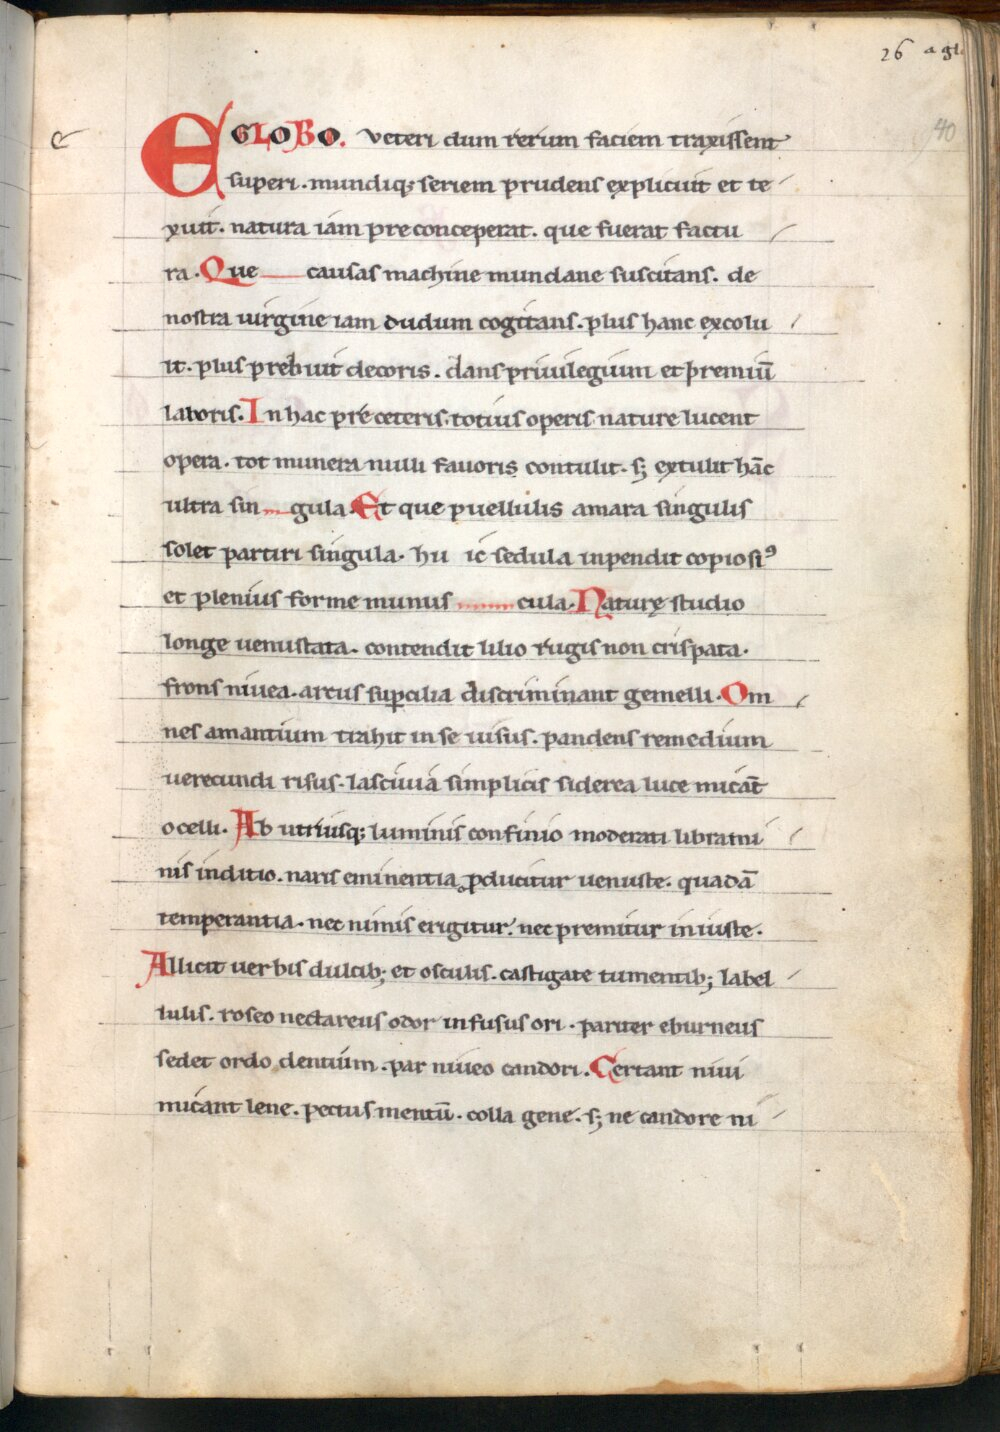 26 a gl
40
E GLOBO. veteri cum rerum faciem traxissent
superi. mundiq; seriem prudens explicuit et te
xuit. natura iam preconceperat. que fuerat factu
ra. Que causas machine mundane suscitans. de
nostra uirgine iam dudum cogitans. plus hanc excolu
it. plus prebuit decoris. dans priuilegium et premiū
laboris. In hac pre ceteris. totius operis nature lucent
opera. tot munera nulli fauoris contulit. s; extulit hāc
ultra sin gula. Et que puellulis amara singulis
solet partiri singula. hu ic sedula inpendit copiosiꝰ
et plenius forme munus cula. Naturę studio
longe uenustata. contendit lilio rugis non crispata.
frons niuea. arcus suꝑcilia discriminant gemelli. Om
nes amantium trahit in se uisus. pandens remedium
uerecundi risus. lasciuia simplicis siderea luce micāt
ocelli. Ab utriusq; luminis confinio moderati librami
nis inditio. naris eminentia ꝓducitur uenuste. quadā
temperantia. nec nimis erigitur. nec premitur iniuste.
Allicit uerbis dulcib; et osculis. castigate tumentib; label
lulis. roseo nectareus odor infusus ori. pariter eburneus
sedet ordo dentium. par niueo candori. Certant niui
micant lene. pectus mentū. colla gene. s; ne candore ni